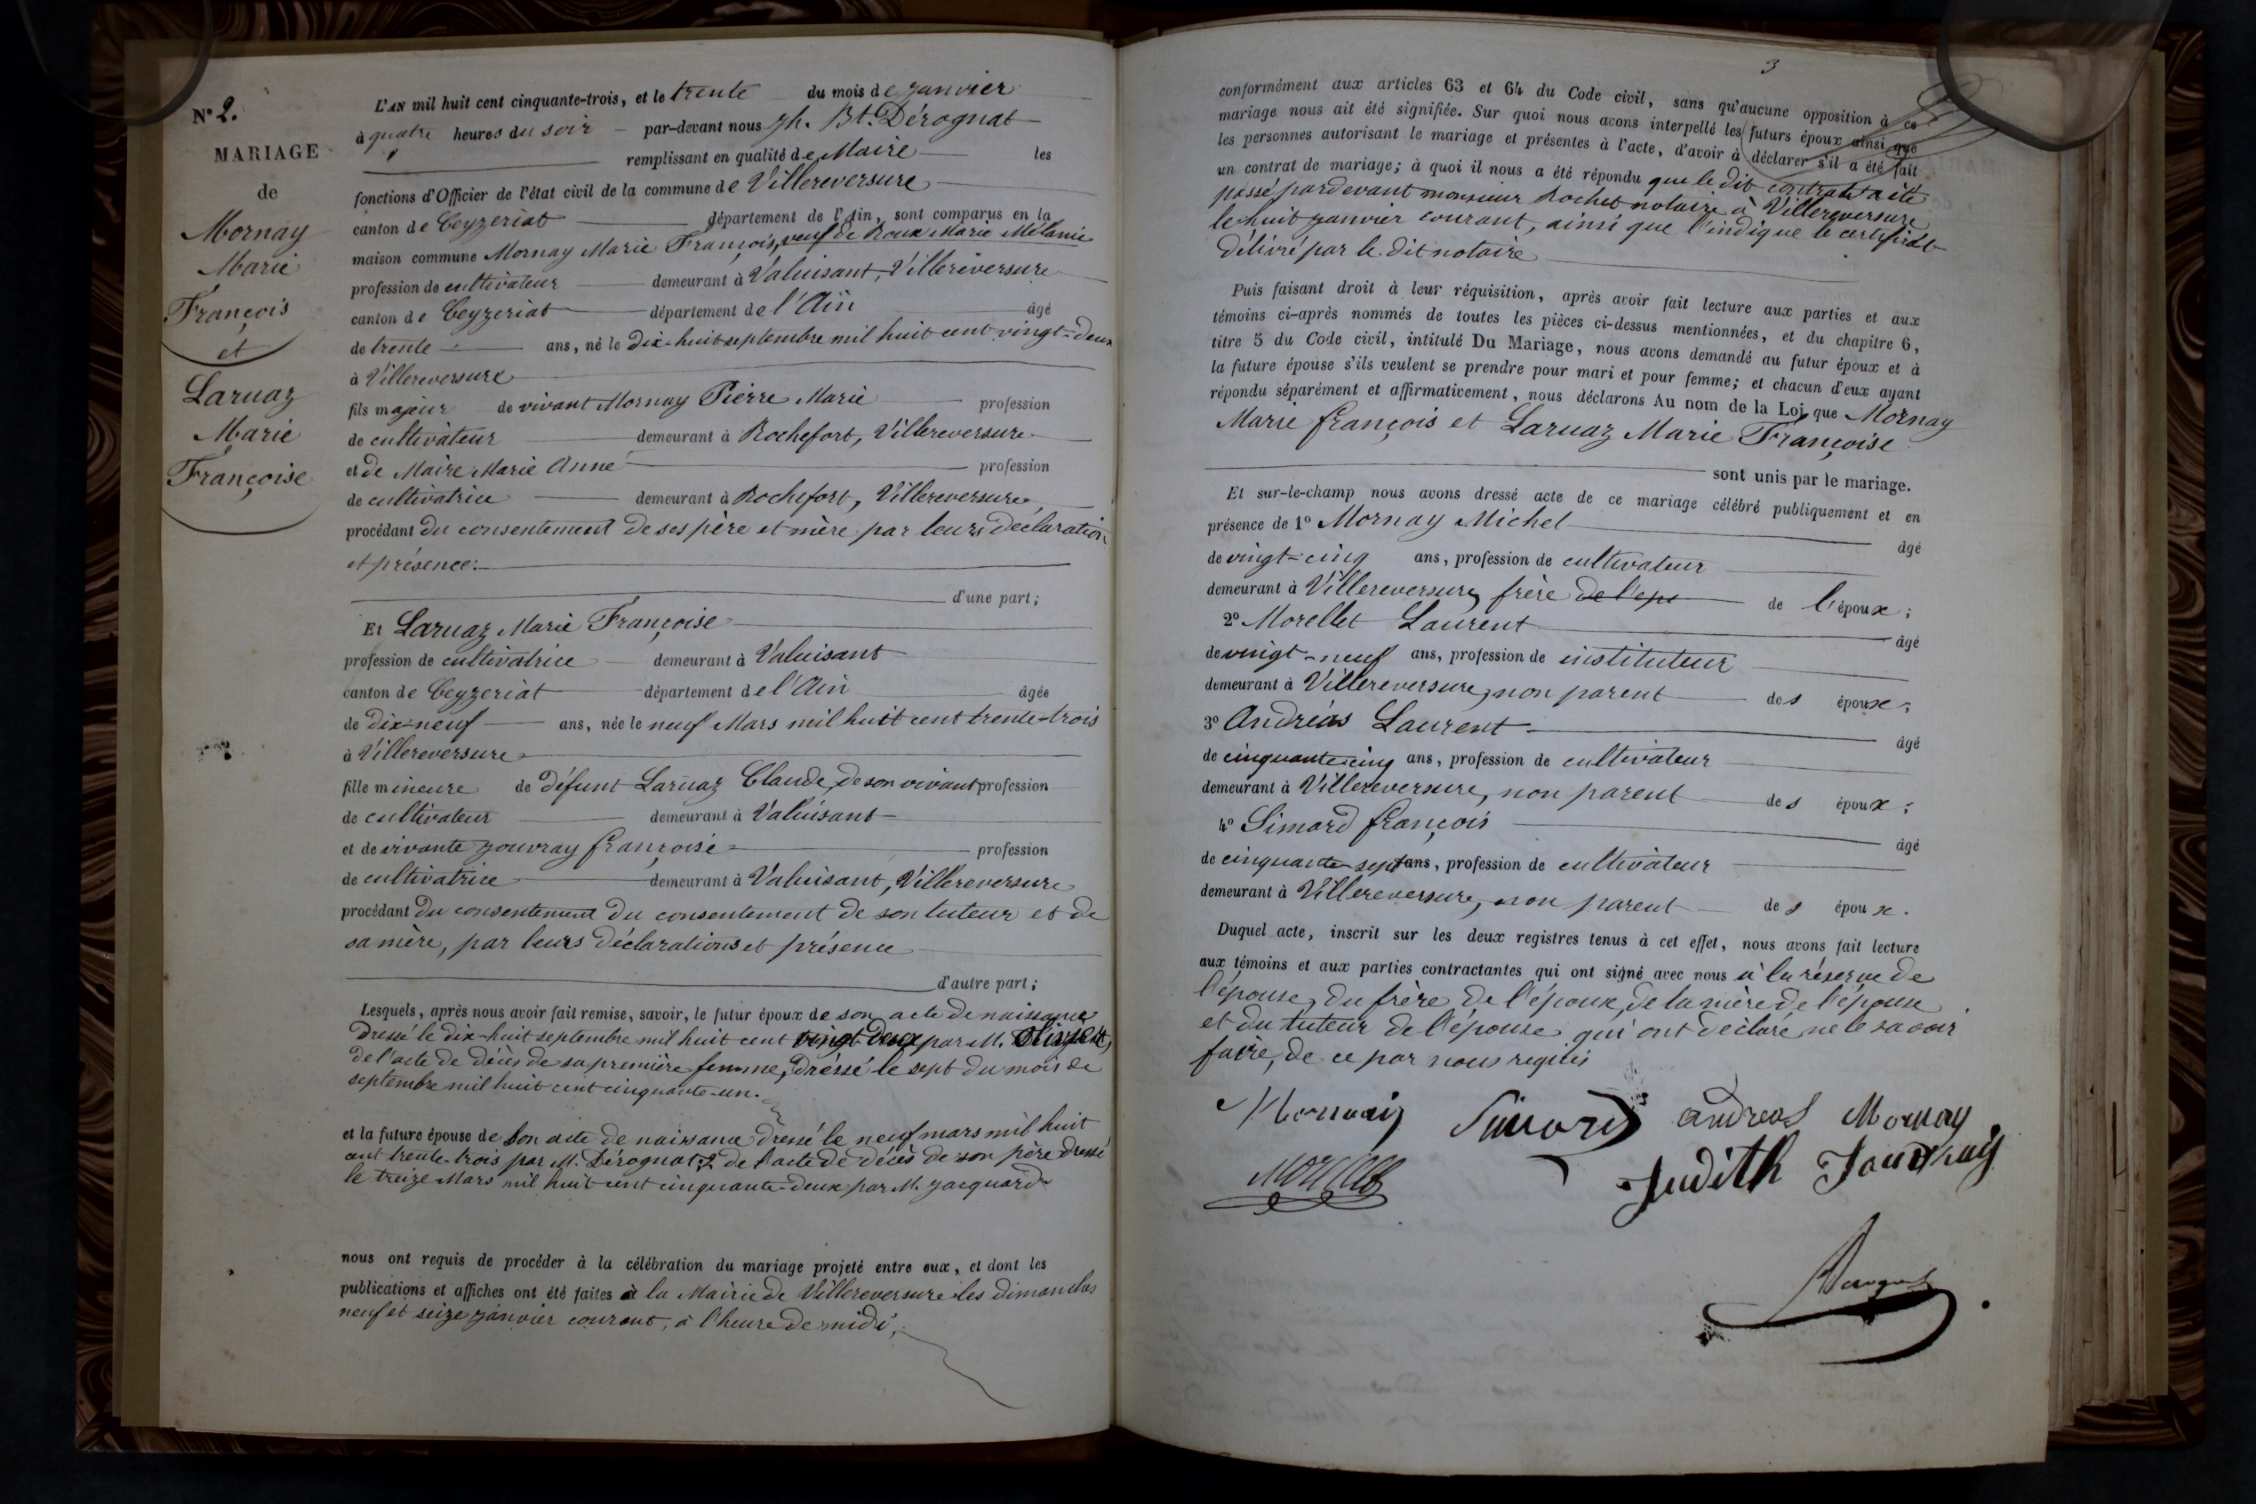 N° 2.
MARIAGE
de
Mornay
Marie
François
et
Laruaz
Marie
Françoise
L'AN mil huit cent cinquante-trois, et le trente du mois de janvier
à quatre heures du soir par-devant nous Jh. Bt. Dérognat
remplissant en qualité de Maire les
fonctions d'Officier de l'état civil de la commune de Villereversure
canton de Ceyzeriat département de l'Ain, sont comparus en la
maison commune Mornay Marie François, veuf de Roux Marie Mélanie
profession de cultivateur demeurant à Valuisant, Villereversure
canton de Ceyzeriat département de l'Ain âgé
de trente ans, né le dix-huit septembre mil huit cent vingt-deux
à Villereversure
fils majeur de vivant Mornay Pierre Marie profession
de cultivateur demeurant à Rochefort, Villereversure
et de Maire Marie Anne profession
de cultivatrice demeurant à Rochefort, Villereversure
procédant du consentement de ses père et mère par leurs déclaration
et présence.
d'une part;
Et Laruaz Marie Françoise
profession de cultivatrice demeurant à Valuisant
canton de Ceyzeriat département de l'Ain âgée
de dix-neuf ans, née le neuf Mars mil huit cent trente-trois
à Villereversure
fille mineure de défunt Laruaz Claude, de son vivant profession
de cultivateur demeurant à Valuisant
et de vivante Jouvray françoise profession
de cultivatrice demeurant à Valuisant, Villereversure
procédant du consentement du consentement de son tuteur et de
sa mère, par leurs déclarations et présence
d'autre part;
Lesquels, après nous avoir fait remise, savoir, le futur époux de son acte de naissance
dressé le dix-huit septembre mil huit cent vingt deux par M.
de l'acte de décès de sa première femme, dréssé le sept du mois de
septembre mil huit cent cinquante-un.
et la future épouse de son acte de naissance dressé le neuf mars mil huit
cent trente-trois par M. Dérognat; 2 de l'acte de décès de son père dressé
le treize Mars mil huit cent cinquante-deux par M. Jacquard
nous ont requis de procéder à la célébration du mariage projeté entre eux, et dont les
publications et affiches ont été faites à la Mairie de Villereversure les dimanches
neuf et seize janvier courant, à l'heure de midi,
3
conformément aux articles 63 et 64 du Code civil, sans qu'aucune opposition à ce
mariage nous ait été signifiée. Sur quoi nous avons interpellé les futurs époux ainsi que
les personnes autorisant le mariage et présentes à l'acte, d'avoir à déclarer s'il a été fait
un contrat de mariage; à quoi il nous a été répondu que le dit contrat a été
passé pardevant monsieur Rochet notaire à Villereversure
le huit janvier courant, ainsi que l'indique le certificat
délivré par le dit notaire
Puis faisant droit à leur réquisition, après avoir fait lecture aux parties et aux
témoins ci-après nommés de toutes les pièces ci-dessus mentionnées, et du chapitre 6,
titre 5 du Code civil, intitulé Du Mariage, nous avons demandé au futur époux et à
la future épouse s'ils veulent se prendre pour mari et pour femme; et chacun d'eux ayant
répondu séparément et affirmativement, nous déclarons Au nom de la Loi que Mornay
Marie françois et Laruaz Marie Françoise
sont unis par le mariage.
Et sur-le-champ nous avons dressé acte de ce mariage célébré publiquement et en
présence de 1° Mornay Michel âgé
de vingt-cinq ans, profession de cultivateur
demeurant à Villereversure, frère de l'epo de l'époux;
2° Morellet Laurent âgé
de vingt-neuf ans, profession de instituteur
demeurant à Villereversure, non parent des époux;
3° Andréas Laurent âgé
de cinquante-cinq ans, profession de cultivateur
demeurant à Villereversure, non parent des époux;
4° Simard françois âgé
de cinquante-sept ans, profession de cultivateur
demeurant à Villereversure, non parent des époux.
Duquel acte, inscrit sur les deux registres tenus à cet effet, nous avons fait lecture
aux témoins et aux parties contractantes qui ont signé avec nous à la réserve de
l'épouse, du frère de l'époux, de la mère de l'épouse
et du tuteur de l'épouse qui ont déclaré ne le savoir
faire, de ce par nous requis
Mornay Simard andreas Mornay
Judith Jouvray